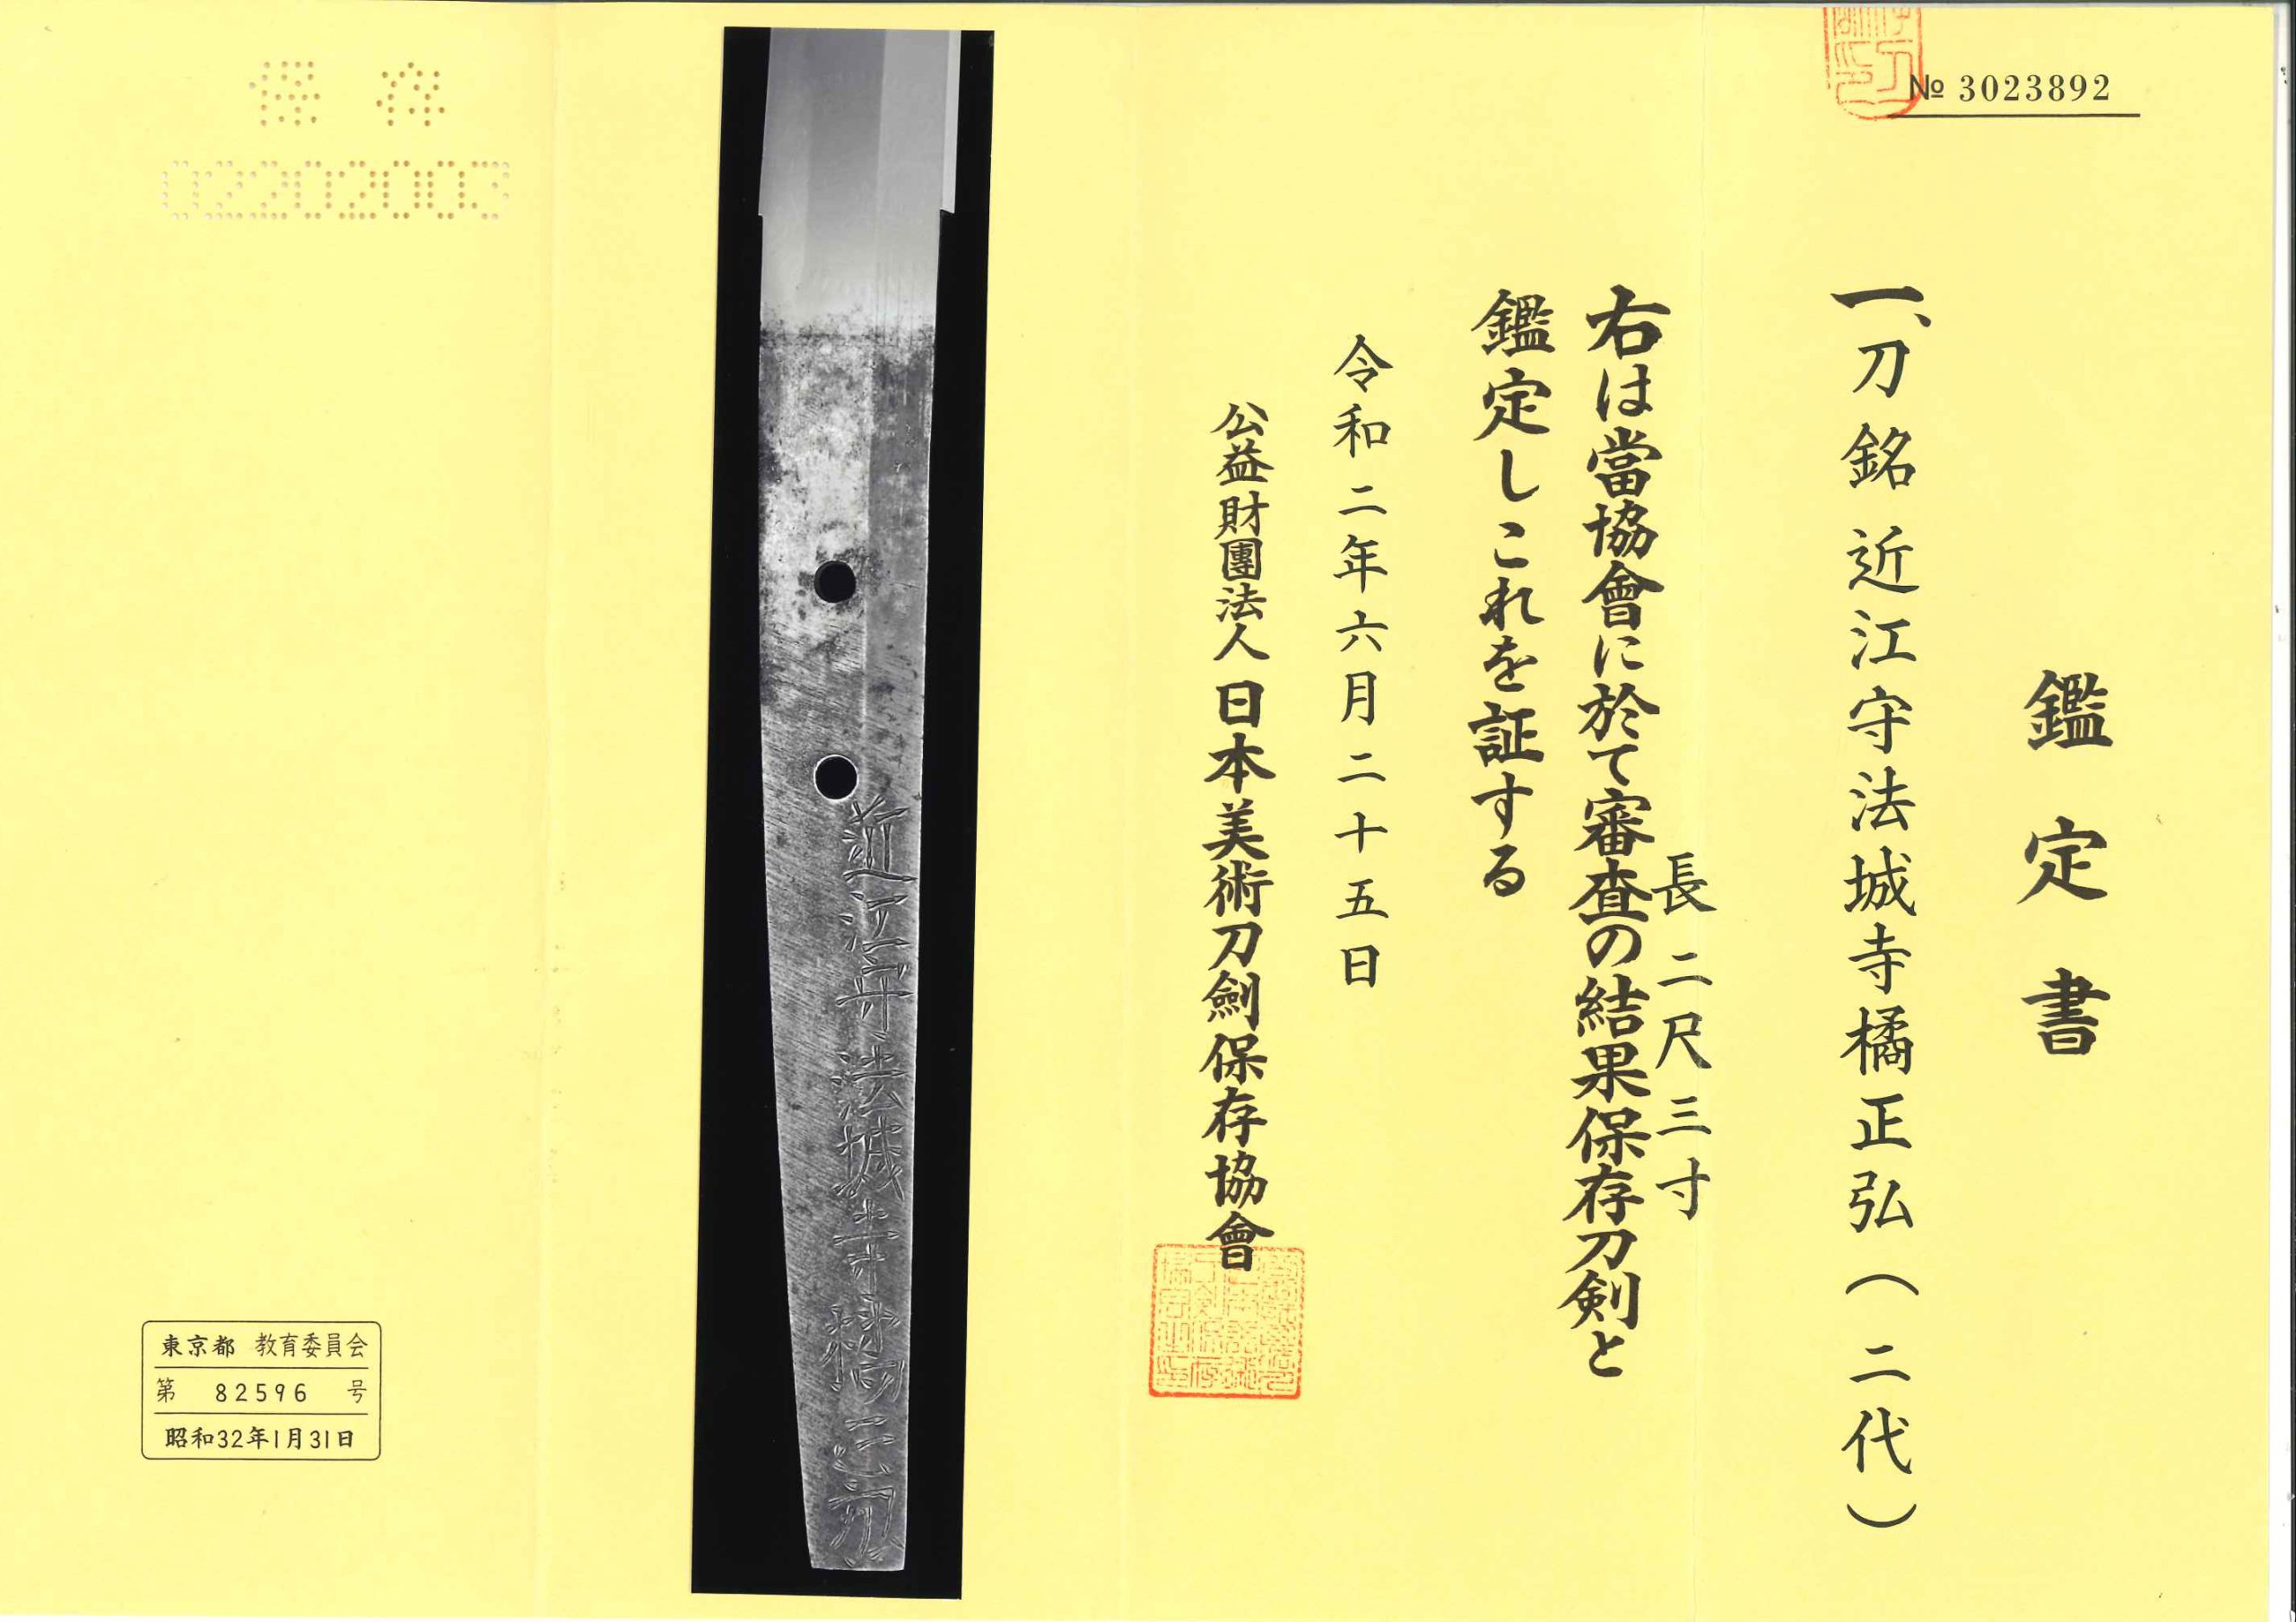 № 3023892
鑑定書
一、刀 銘 近江守法城寺橘正弘(二代)
長 二尺三寸
右は當協會に於て審査の結果保存刀剣と
鑑定しこれを証する
令和二年六月二十五日
公益財團法人 日本美術刀劍保存協會
近江守法城寺橘正弘
保存
02202003
東京都 教育委員会
第 82596 号
昭和32年1月31日